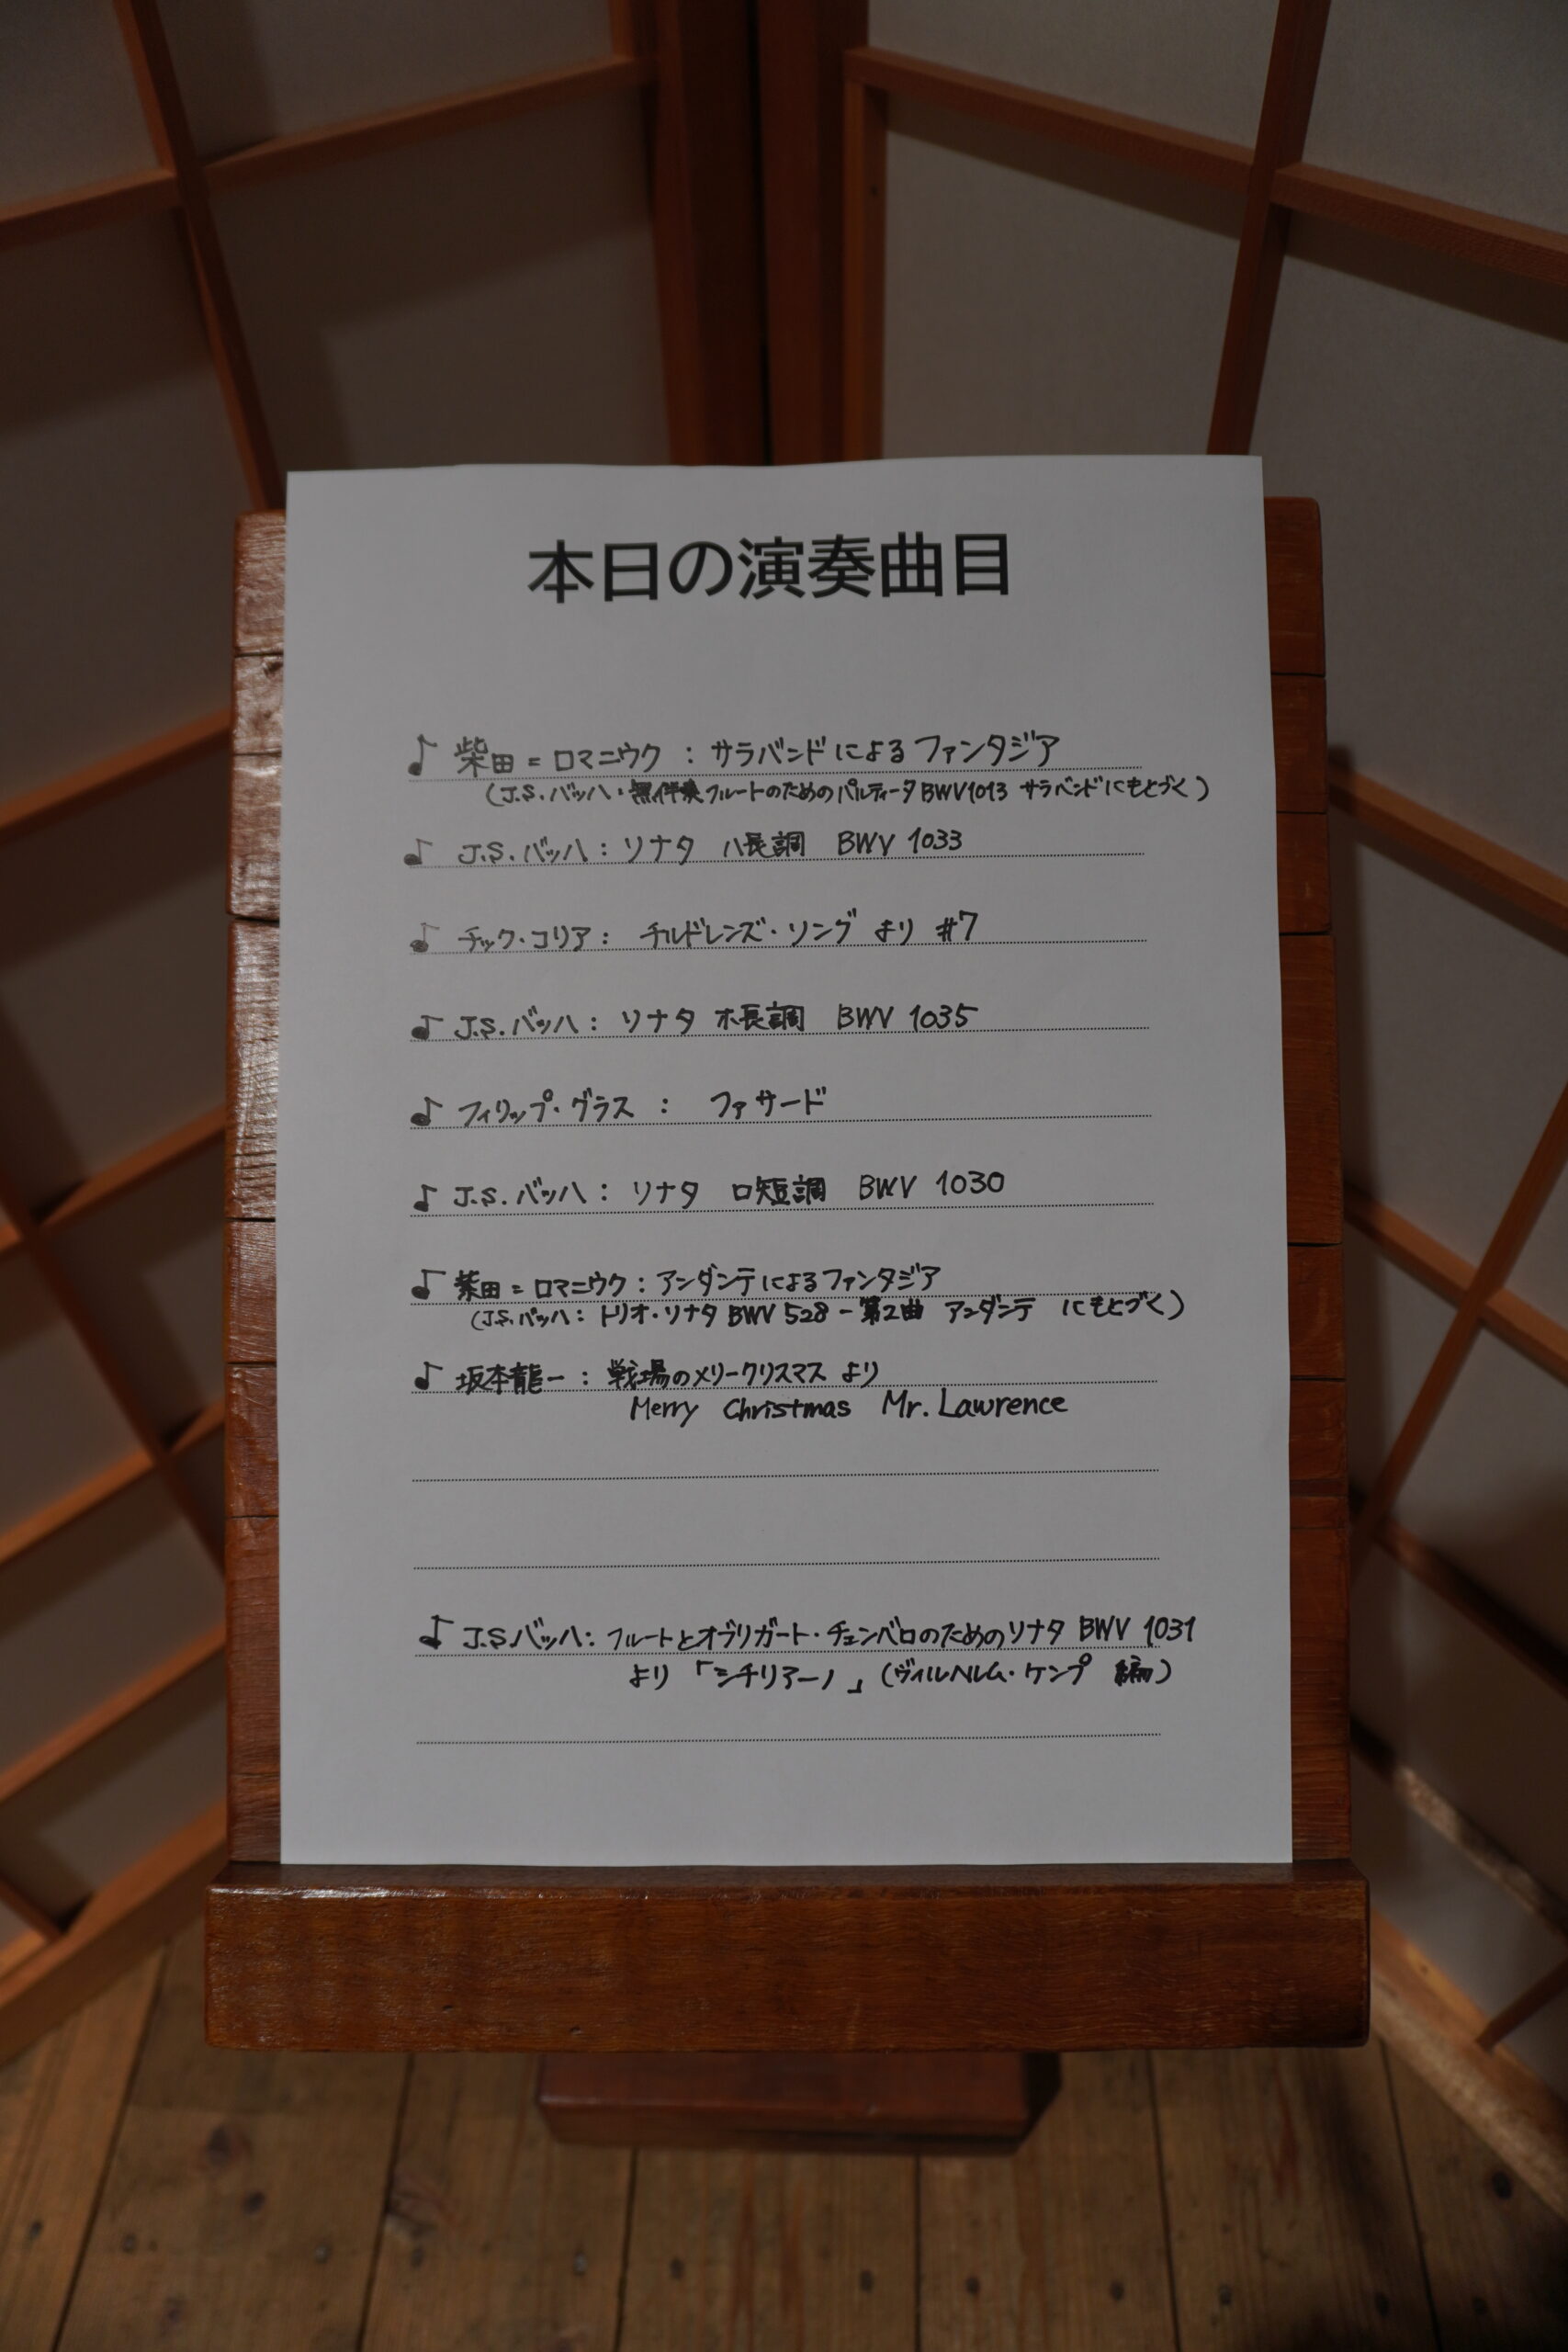 本日の演奏曲目
♪ 柴田=ロマニウク : サラバンドによるファンタジア
(J.S.バッハ:無伴奏フルートのためのパルティータBWV1013 サラバンドにもとづく)
♪ J.S.バッハ: ソナタ ハ長調 BWV 1033
♪ チック・コリア: チルドレンズ・ソング より #7
♪ J.S.バッハ: ソナタ ホ長調 BWV 1035
♪ フィリップ・グラス : ファサード
♪ J.S.バッハ: ソナタ ロ短調 BWV 1030
♪ 柴田=ロマニウク: アンダンテによるファンタジア
(J.S.バッハ: トリオ・ソナタ BWV 528 - 第2曲 アンダンテ にもとづく)
♪ 坂本龍一: 戦場のメリークリスマス より
Merry Christmas Mr. Lawrence
♪ J.S.バッハ: フルートとオブリガート・チェンバロのためのソナタ BWV 1031
より 「シチリアーノ」(ヴィルヘルム・ケンプ 編)